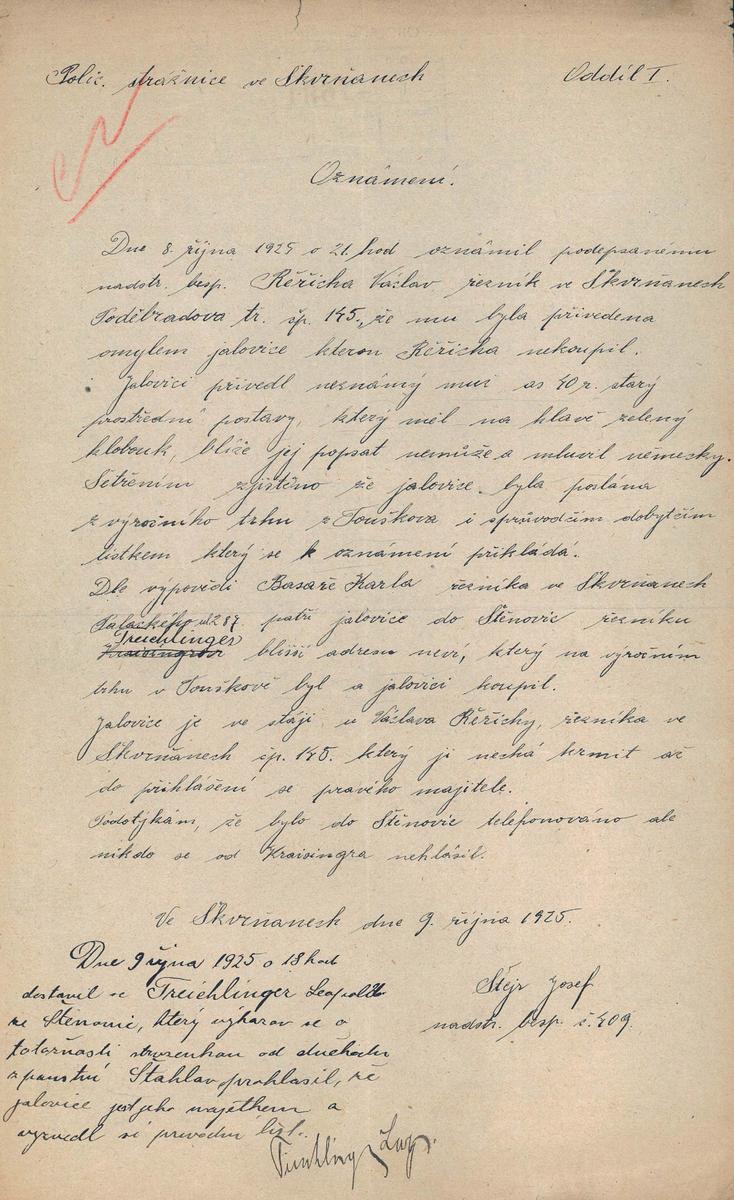 Polic. strážnice ve Škvrňanech Oddíl I.
Oznámení.
Dne 8. října 1925 o 21. hod oznámil podepsanému
nadstr. besp. Řěřicha Václav řezník ve Škvrňanech
Poděbradova tr. čp. 145., že mu byla přivedena
omylem jalovice kterou Řěřicha nekoupil.
Jalovici přivedl neznámý muž as 40 r. starý
prostřední postavy, který měl na hlavě zelený
klobouk, blíže jej popsat nemůže a mluvil německy.
Šetřením zjištěno že jalovice byla poslána
z výročního trhu z Touškova i sprůvodčím dobytčím
lístkem který se k oznámení přikládá.
Dle výpovědi Basaře Karla řezníka ve Škvrňanech
Palackého ul. 287. patří jalovice do Štěnovic řezníku
Treichlinger
bližší adresu neví, který na výročním
trhu v Touškově byl a jalovici koupil.
Jalovice je ve stáji u Václava Řěřichy, řezníka ve
Škvrňanech čp. 145. který ji nechá krmit až
do přihlášení se pravého majitele.
Podotýkám, že bylo do Štěnovic telefonováno ale
nikdo se od Kraisingra nehlásil.
Ve Škvrňanech dne 9. října 1925.
Štějr Josef
nadstr. besp. č. 409.
Dne 9 října 1925 o 18 hod
dostavil se Treichlinger Leopold
ze Štěnovic, který vykazav se o
totožnosti od
z panství Štahlav prohlasil, že
jalovice jest jeho majetkem a
vyzvedl si průvodní list.